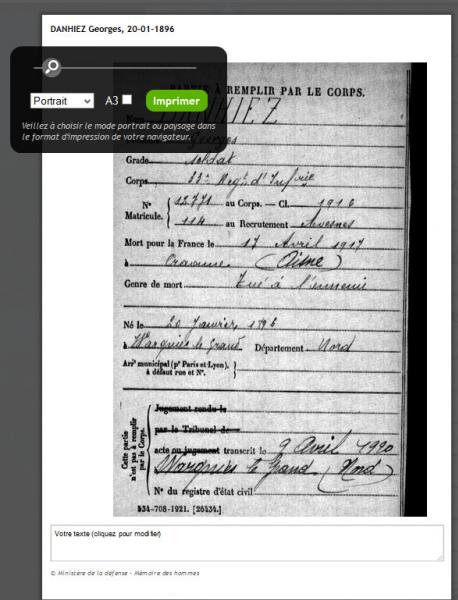 DANHIEZ Georges, 20-01-1896
Portrait
A3
Imprimer
Veillez à choisir le mode portrait ou paysage dans
le format d'impression de votre navigateur.
PARTIE À REMPLIR PAR LE CORPS.
Nom DANHIEZ
Georges
Grade soldat
Corps 33e Regt d'Infrie
N° Matricule. { 12771 au Corps. — Cl. 1916
114 au Recrutement Avesnes
Mort pour la France le 17 Avril 1917
à Craonne (Aisne)
Genre de mort Tué à l'ennemi
Né le 20 Janvier 1896
à Wargnies le Grand Département Nord
Arrt municipal (pr Paris et Lyon),
à défaut rue et N°.
Cette partie
n'est pas à remplir
par le Corps.
Jugement rendu le
par le Tribunal de
acte ou jugement transcrit le 9 Avril 1920
Wargnies le Grand (Nord)
N° du registre d'état civil
534-708-1921. [26434.]
Votre texte (cliquez pour modifier)
© Ministère de la défense - Mémoire des hommes